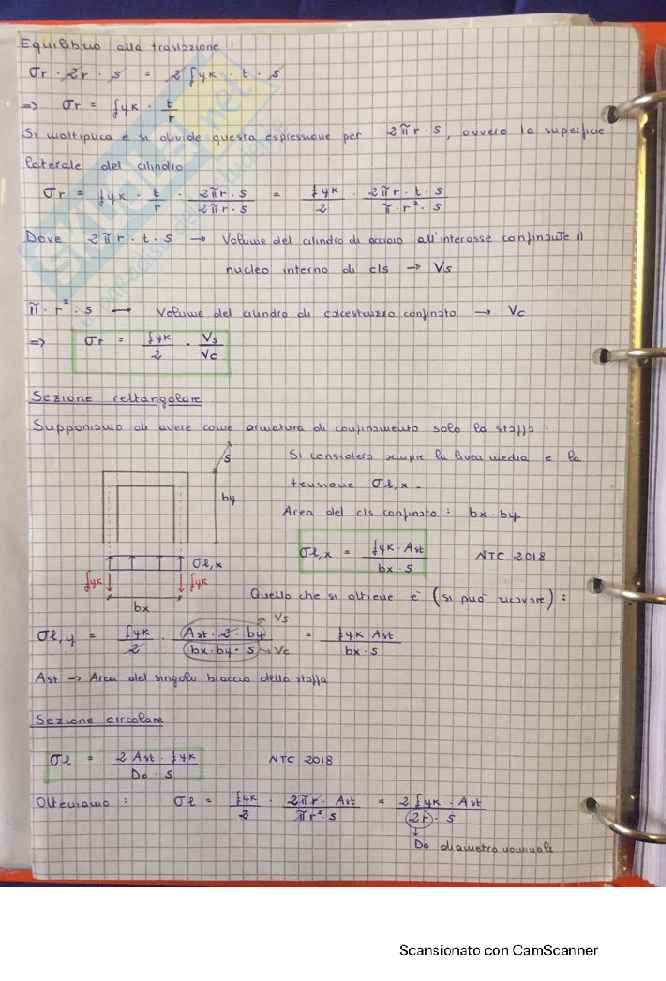 Equilibrio alla traslazione
σr · 2r · s = 2 fyk · t · s
=> σr = fyk · t/r
Si moltiplica e si divide questa espressione per 2πr·s, ovvero la superficie
laterale del cilindro
σr = fyk · t/r · 2πr·s / 2πr·s = fyk/2 · 2πr·t·s / π·r²·s
Dove 2πr·t·s → Volume del cilindro di acciaio all'interasse confinante il
nucleo interno di cls → Vs
π·r²·s → Volume del cilindro di calcestruzzo confinato → Vc
=> σr = fyk/2 · Vs/Vc
Sezione rettangolare
Supponiamo di avere come armatura di confinamento solo la staffa:
Si considera sempre la linea media e la
tensione σl,x.
Area del cls confinato: bx·by
σl,x = fyk·Ast / bx·s NTC 2018
s
by
σl,x
fyk fyk
bx
Quello che si ottiene è (si può ):
σl,y = fyk/2 · Ast·2·by / bx·by·s = fyk Ast / bx·s
Vs
Vc
Ast → Area del singolo braccio della staffa
Sezione circolare
σl = 2 Ast · fyk / Do · s NTC 2018
Otteniamo: σl = fyk/2 · 2πr·Ast / πr²·s = 2 fyk·Ast / 2r·s
Do diametro nominale
Scansionato con CamScanner